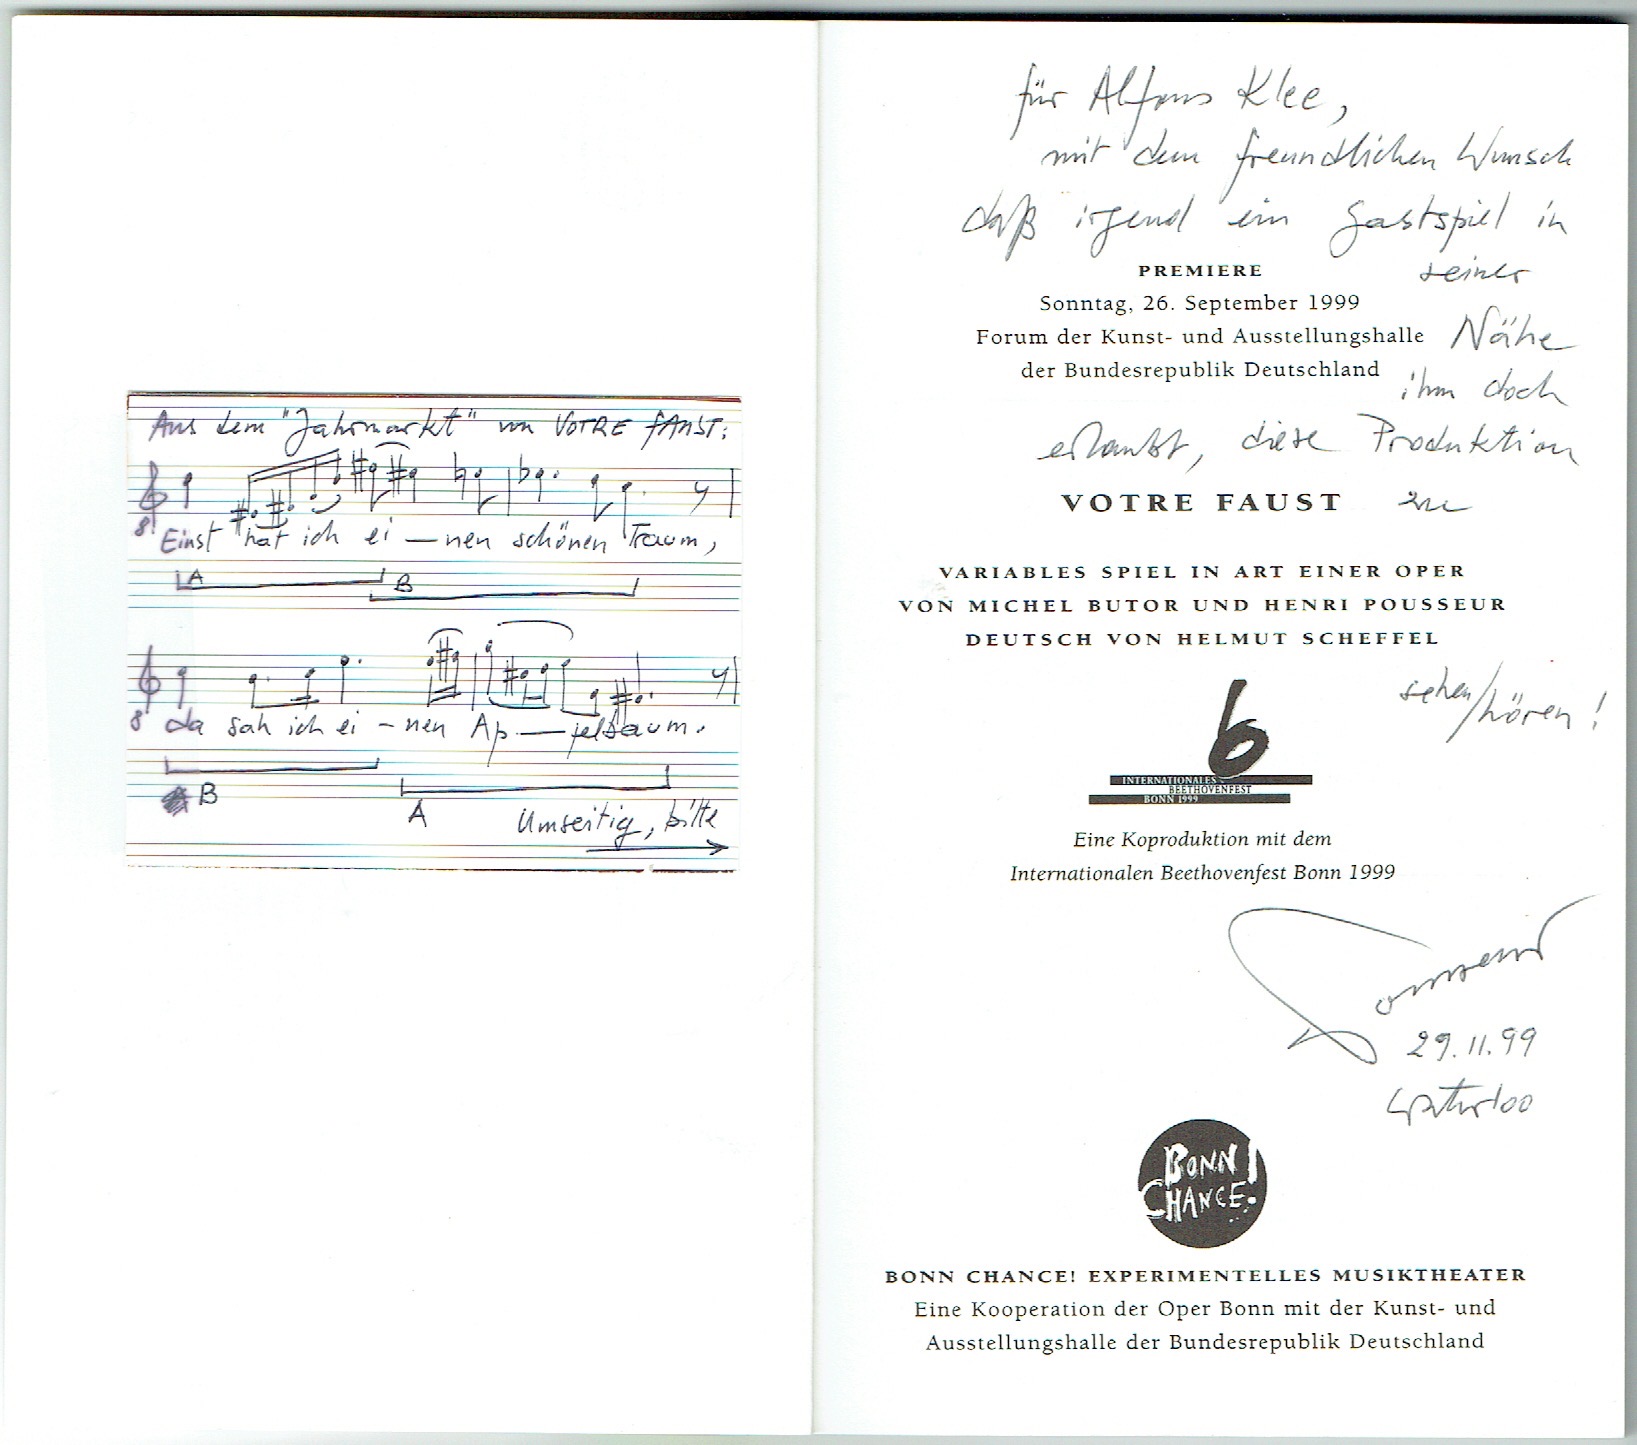 Aus dem "Jahrmarkt" von VOTRE FAUST:
8
Einst hat ich ei — nen schönen Traum,
A B
8
da sah ich ei - nen Ap — felbaum.
B
A
Umseitig, bitte
für Alfons Klee,
mit dem freundlichen Wunsch
daß irgend ein Gastspiel in
seiner
PREMIERE
Sonntag, 26. September 1999
Forum der Kunst- und Ausstellungshalle
Nähe
der Bundesrepublik Deutschland
ihm doch
erlaubt, diese Produktion
VOTRE FAUST zu
VARIABLES SPIEL IN ART EINER OPER
VON MICHEL BUTOR UND HENRI POUSSEUR
DEUTSCH VON HELMUT SCHEFFEL
sehen/hören!
b
INTERNATIONALES
BEETHOVENFEST
BONN 1999
Eine Koproduktion mit dem
Internationalen Beethovenfest Bonn 1999
Pousseur
29.11.99
Waterloo
BONN
CHANCE!
BONN CHANCE! EXPERIMENTELLES MUSIKTHEATER
Eine Kooperation der Oper Bonn mit der Kunst- und
Ausstellungshalle der Bundesrepublik Deutschland